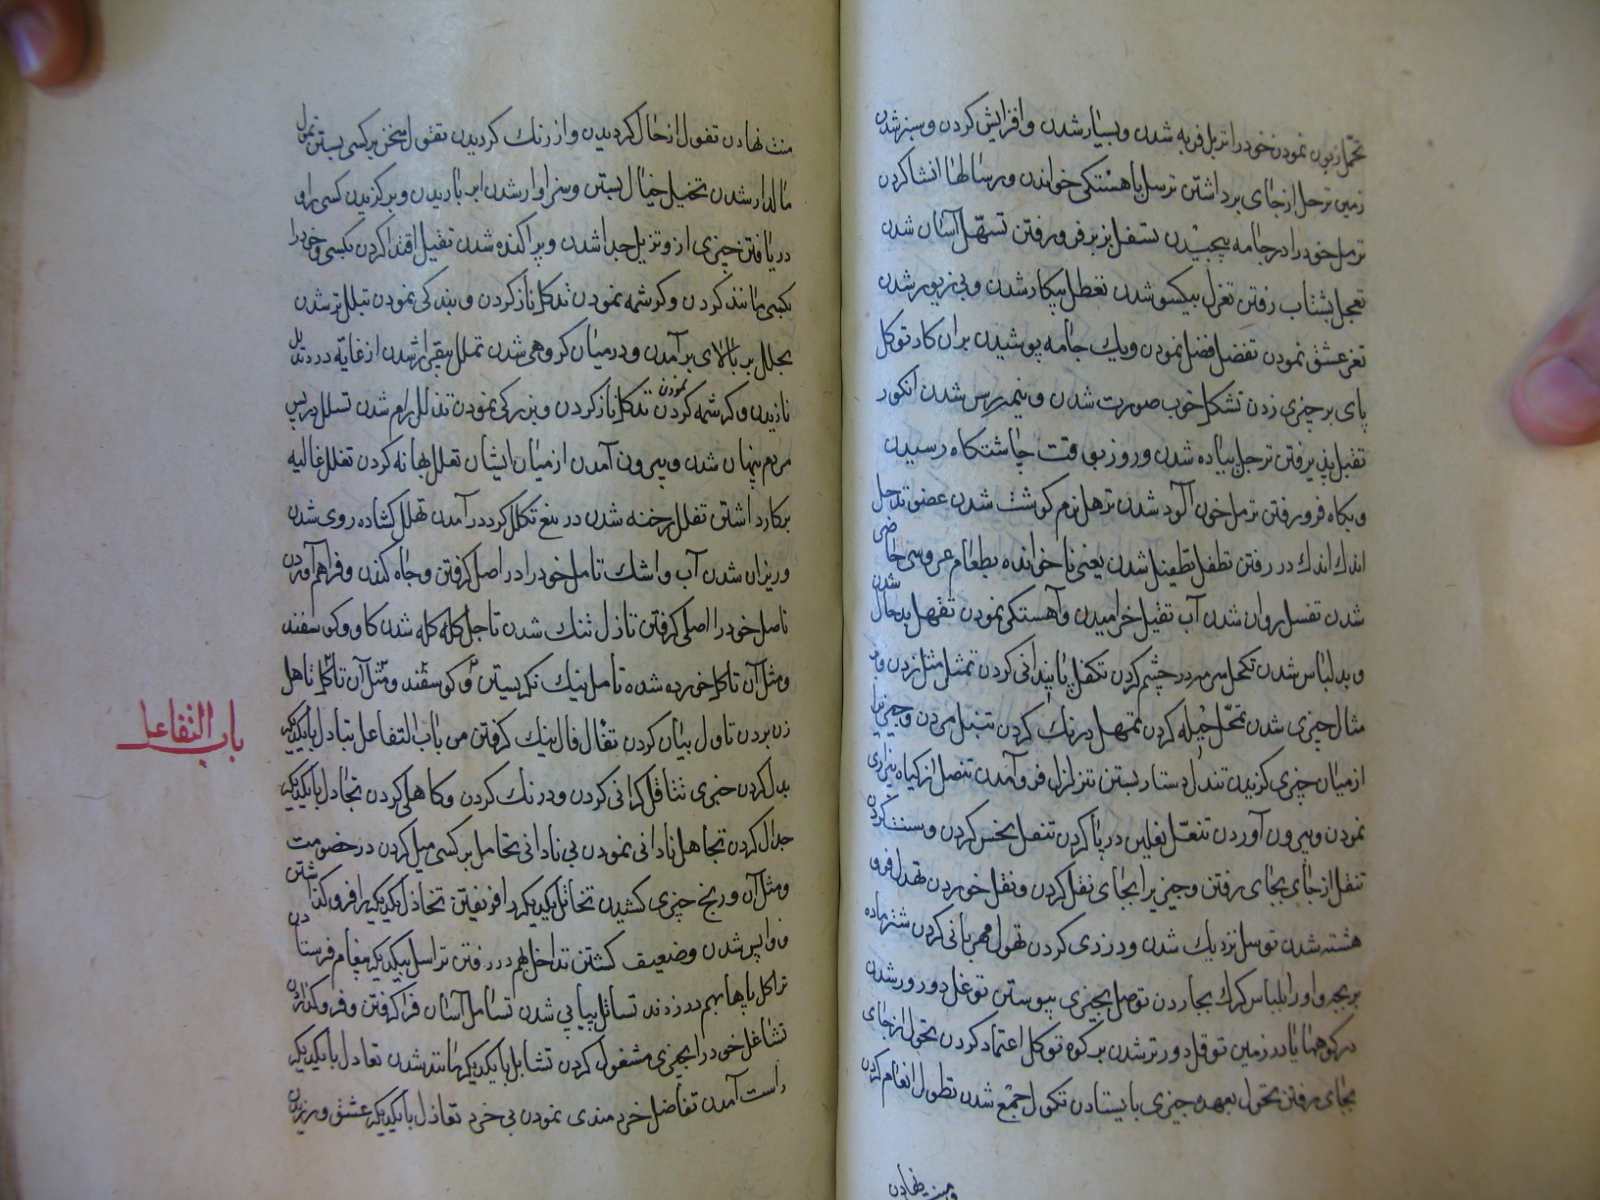 تحمل زبون نمودن خود را تربل فربه شدن و بسیار شدن و افزایش کردن و سبز شدن
زمین ترحل از جای برداشتن ترسل باهستکی خواندن و رسالها انشا کردن
تزمل خود را در جامه پیچیدن تسفل بزیر فرو رفتن تسهّل آسان شدن
تعجل بشتاب رفتن تعزل بیکسو شدن تعطل بیکار شدن و بی زیور شدن
تغزل عشق نمودن تفضل فضل نمودن و یک جامه پوشیدن بران کار توکل
پای بر چیزی زدن تشکل خوب صورت شدن و نیم رس شدن انکور
تقبل پذیرفتن ترجل پیاده شدن و روز بوقت چاشتکاه رسیدن
و بکاه فرو رفتن ترمل خون آلود شدن ترهل نرم کوشت شدن عضو تدخل
اندک اندک در رفتن تطفل تطفیل شدن یعنی ناخوانده بطعام عروسی حاضر
شدن تفسل روان شدن آب تقیل خرامیدن و آهستکی نمودن تقهل بدحال شدن
و بد لباس شدن تکحل سرمه در چشم کردن تکفل پایندانی کردن تمثل مثل زدن و بر
مثال چیزی شدن تمحّل حیله کردن تمهل درنک کردن تنبل مردن و چیزی را
از میان چیزی کزیدن تندل دستار بستن تنزل فرو آمدن تنصل از کیاه بیزاری
نمودن و بیرون آوردن تنعّل نعلین در پا کردن تنفل بخس کردن و سنت کردن
تنقل از جای بجای رفتن و چیزیرا بجای نقل کردن و نقل خوردن تهدل فرو
هشته شدن توسل نزدیک شدن و دزدی کردن تهول مهربانی کردن شتر ماده
بر بچه و او را بلباس کرک بچاردن توصل بچیزی پیوستن توغل دور ور شدن
در کوهها یا در زمین توقل دورتر شدن بر کوه توکل اعتماد کردن تحول از جای
بجای رفتن تحول بعهده چیزی بایستادن تکول جمع شدن تطول انعام کردن
و منت نهادن
منت نهادن تغول از حال کردیدن و از رنک کردیدن تقول سخن بر کسی بستن تمول
مالدار شدن تخیل خیال بستن و سزاوار شدن ابر بباریدن و برکزیدن کسی را و
دریافتن چیزی از و تزیل جدا شدن و پراکنده شدن تقیل اقتدا کردن بکسی و خود را
بکسی مانند کردن و کوشمه نمودن تدکل ناز کردن و بندکی نمودن تبلل تر شدن
تجلل بر بالای برآمدن و در میان کروهی شدن تملل بیقرار شدن از غایه درد تدلل
نازیدن و کرشمه کردن نمودن تدکل ناز کردن و بزرکی نمودن تذلل رام شدن تسلل در پس
مردم پنهان شدن و بیرون آمدن از میان ایشان تعلل بهانه کردن تغلل غالیه
بکار داشتن تفلل رخنه شدن در تیغ تکلل کرد در آمدن تهلل کشاده روی شدن
و ریزان شدن آب و اشک تامل خود را در اصل کرفتن و جاه کندن و فراهم آوردن
تاصل خود را اصلی کرفتن تازل تنک شدن تاجل کله کله شدن کاو و کوسفند
و مثل آن تاکل خورده شده تامل نیک نکریستن و کوسفند و مثل آن تاکل تاهل
زن بردن تاول بیان کردن تفال فال نیک کرفتن من باب التفاعل تبادل بایکدیکر
باب التفاعل
بدل کردن چیزی تثاقل کرانی کردن و درنک کردن و کاهلی کردن تجادل بایکدیکر
جدال کردن تجاهل نادانی نمودن بی نادانی تحامل بر کسی میل کردن در خصومت
و مثل آن و رنج چیزی کشیدن تخاتل یکدیکر را فریفتن تخاذل یکدیکر را فرو کذاشتن
و واپس شدن و ضعیف کشتن تداخل هم در رفتن تراسل بیکدیکر پیغام فرستادن
تراکل پاها بهم در زدند تسائل پیاپی شدن تساهل آسان فرا کرفتن و فرو کذاردن
تشاغل خود را بچیزی مشغول کردن تشابل بایکدیکر مانند شدن تعادل بایکدیکر
راست آمدن تفاضل خردمندی نمودن بی خرد تعاذل بایکدیکر عشق ورزیدن